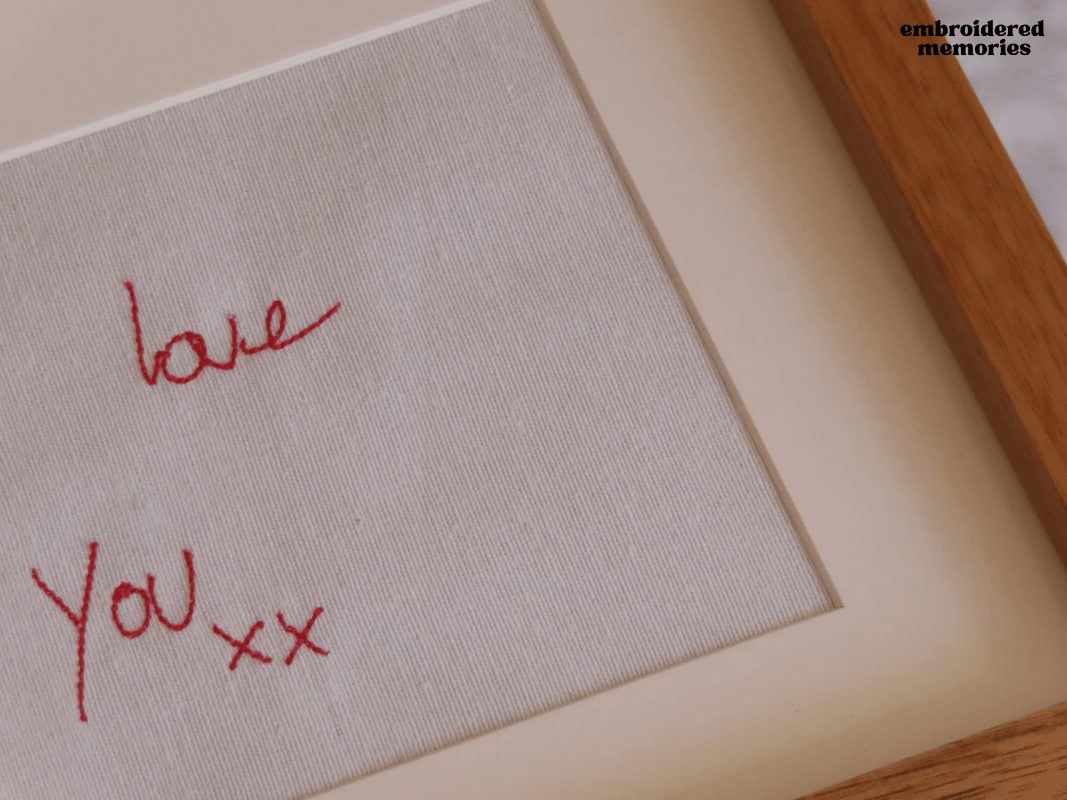 embroidered
memories
love
You xx